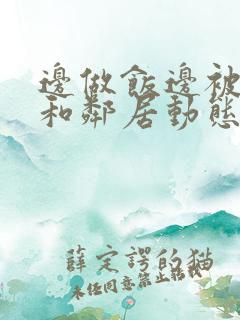 邊做飯邊被
和鄰居動態
薛定諤的猫
未經同意禁止轉載